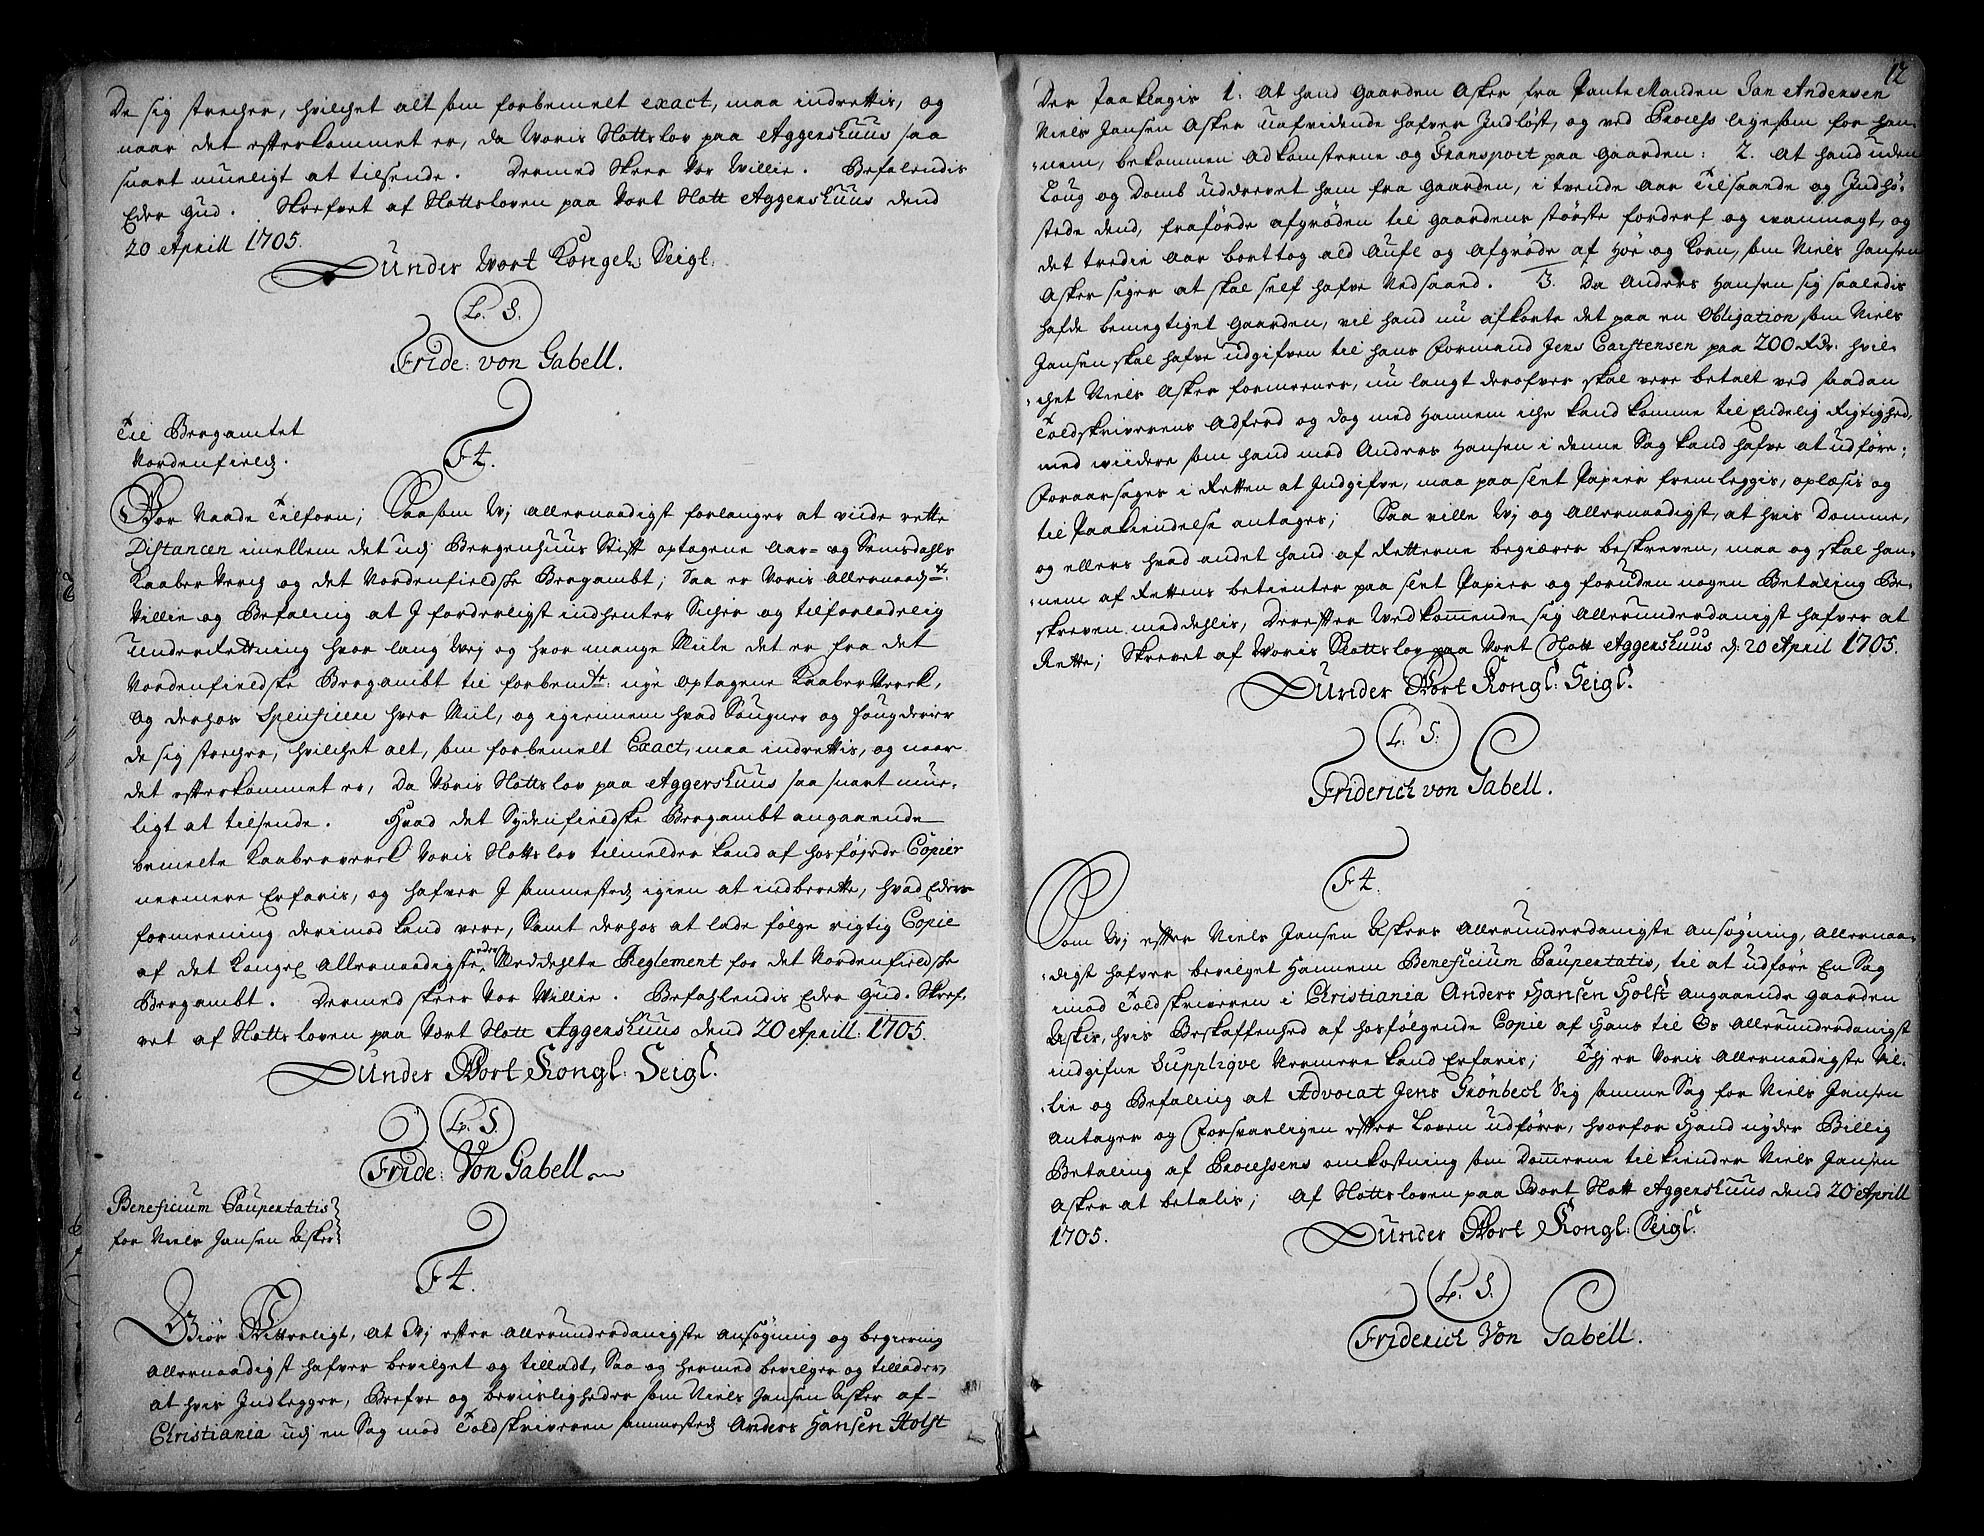 De sig strecher, hvilchet alt som forbemelt exact, maa indrettis, og
naar det efterkommet er, da Woris Slottslov paa Aggershuus saa
snart mueligt at tilsende. Dermed skeer Vor Villie. Befalendis
Eder Gud. Skrefvet af Slottsloven paa Vort Slott Aggershuus dend
20 Aprill 1705.
Under Wort Kongel: Seigl.
L. S.
Fride: von Gabell.
Til Bergamtet
Nordenfields.
F4.
Vor Naade Tilforn; Saasom Wj allernaadigst forlanger at viide rette
Distancen imellem det udj Bergenhuus Stift optagene Aar- og Semsdahls
Kaaber Verch og det Nordenfieldsche Bergambt; Saa er Voris Allernaadste
Villie og Befaling at J forderligst indhenter Sicher og tilforladelig
underrettning hvor lang Wej og hvor mange Miile det er fra det
Nordenfieldske Bergambt til forbemte: nye optagene Kaaber Verck,
og derhos Specificere hver Miil, og igiennem hvad Sougner og fougderier
de sig strecher, hvilchet alt, som forbemelt Exact, maa indrettis, og naar
det efterkommet er, da Voris Slottslov paa Aggershuus saa snart mue-
ligt at tilsende. Hvad det Sydenfieldske Bergambt angaaende
bemelte Kaaberverck Voris Slottslov tilmelder kand af hosføjede Copier
nermere Erfaris, og hafver J sammesteds igien at indberette, hvad Eders
formeening derimod kand vere, Samt derhos at lade følge rigtig Copie
af det Kongel Allernaadigste eder Meddehlte Reglement for det Nordenfieldsche
Bergambt. Dermed skeer Vor Willie. Befahlendis Eder Gud. Skref-
vet af Slottsloven paa Vort Slott Aggershuus dend 20 Aprill: 1705.
Under Wort Kongl: Seigl.
L. S.
Fride: Von Gabell.
Beneficium Paupertatis
for Niels Jansen Asker
F4.
Giør Witterligt, at Wj efter allerunderdanigste ansøgning og begiering
allernaadigst hafver bevilget og tilladt, Saa og hermed bevilger og tillader,
at hvis Indlegger, Brefve og beviisligheder som Niels Jansen Asker af
Christiania udj en Sag mod Toldskriveren sammesteds Anders Hansen Holst
12
Der paaklagis 1. At hand Gaarden Asker fra Pante Manden Jan Andersen
Niels Jansen Asker uafvidende hafver Indløst, og ved Process ligesom for han-
nem, bekommen Adkomsterne og Transport paa Gaarden: 2. At hand uden
Loug og Domb uddrevet ham fra Gaarden, i tvende aar Tilsaaede og Indhø-
stede dend, fraførde afgrøden til Gaardens største forderf og wanmagt, og
det tredie aar borttog ald Aufl og Afgrøde af Høe og Korn, som Niels Jansen
Asker siger at skal self hafve Nedsaaed. 3. Da Anders Hansen sig saaledis
hafde bemegtiget Gaarden, vil hand nu afkorte det paa en Obligation som Niels
Jansen skal hafve udgifven til hans Formand Jens Carstensen paa 200 Rdr: hvil-
chet Niels Asker formeener, nu langt derofver skal vere betalt ved saadan
Toldskriverens Adferd og dog med Hannem iche kand komme til Endelig Rigtighed,
med wiidere som hand mod Anders Hansen i denne Sag kand hafve at udføre;
Foraarsages i Retten at Indgifve, maa paa slet Papier fremleggis, oplæsis og
til Paakiendelse antages; Saa ville Wj og Allernaadigst, at hvis Domme,
og ellers hvad andet hand af Retterne begiærer beskreven, maa og skal han-
nem af Rettens betienter paa slet Papier og foruden nogen Betaling Be-
skreven meddehlis, Derefter Wedkommende sig Allerunderdanigst hafver at
Rette; Skrevet af Woris Slottslov paa Vort Slott Aggershuus d: 20 April 1705.
Under Wort Kongl: Seigl.
L. S.
Friderich von Gabell.
F4.
Som Wj efter Niels Jansen Askers Allerunderdanigste ansøgning, Allernaa-
digst hafver bevilget Hannem Beneficium Paupertatis, til at udføre En Sag
imod Toldskriveren i Christiania Anders Hansen Holst angaaende Gaarden
Asker, hvis Beskaffenhed af hosfølgende Copie af Hans til Os Allerunderdanigst
indgifne Supplique Nermere kand Erfaris; Thj er Voris Allernaadigste Vil-
lie og Befaling at Advocat Jens Grønbech Sig samme Sag for Niels Jansen
Antager og Forsvarligen efter Loven udfører, hvorfor Hand nyder Billig
Betaling af Processens omkostning som Dommerne tilkiender Niels Jansen
Asker at betalis; Af Slottsloven paa Wort Slott Aggershuus dend 20 Aprill
1705.
Under Wort Kongl: Seigl.
L. S.
Friderich Von Gabell.